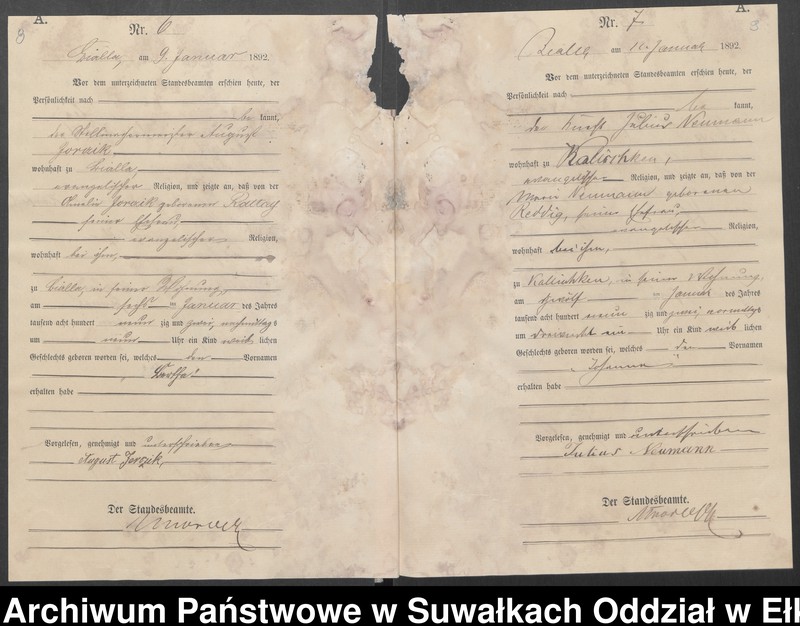 A.
Nr. 6.
Bialla, am 9. Januar 1892.
Vor dem unterzeichneten Standesbeamten erschien heute, der
Persönlichkeit nach
be kannt,
der Stellmachermeister August
Jorzik
wohnhaft zu Bialla,
evangelischer Religion, und zeigte an, daß von der
Amalie Jorzik geborenen
seiner Ehefrau,
evangelischer Religion,
wohnhaft bei ihm,
zu Bialla, in seiner Wohnung,
am sechs ten Januar des Jahres
tausend acht hundert neun zig und zwei, nachmittags
um neun Uhr ein Kind weib lichen
Geschlechts geboren worden sei, welches den Vornamen
"Bertha"
erhalten habe
Vorgelesen, genehmigt und unterschrieben
August Jorzik,
Der Standesbeamte.
A.
Nr. 7
Bialla am Januar 1892
Vor dem unterzeichneten Standesbeamten erschien heute, der
Persönlichkeit nach
be kannt,
der Julius Neumann
wohnhaft zu Kalischken,
evangelischer Religion, und zeigte an, daß von der
Marie Neumann geborenen
Reddig, seiner Ehefrau,
evangelischer Religion,
wohnhaft bei ihm,
zu Kalischken, in seiner Wohnung,
am zwölf ten Januar des Jahres
tausend acht hundert neun zig und zwei, vormittags
um Uhr ein Kind weib lichen
Geschlechts geboren worden sei, welches den Vornamen
"Johanna"
erhalten habe
Vorgelesen, genehmigt und unterschrieben
Julius Neumann
Der Standesbeamte.
Archiwum Państwowe w Suwałkach Oddział w Ełk